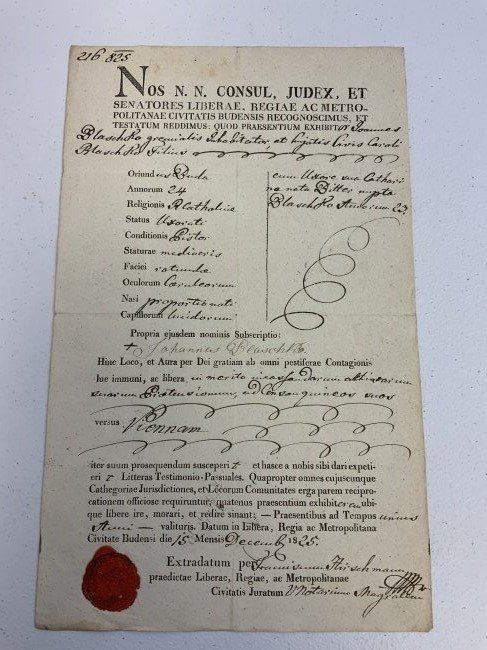 216 825
NOS N. N. CONSUL, JUDEX, ET
SENATORES LIBERAE, REGIAE AC METRO-
POLITANAE CIVITATIS BUDENSIS RECOGNOSCIMUS, ET
TESTATUM REDDIMUS: QUOD PRAESENTIUM EXHIBITOR Joannes
Blaschko gremialis Inhabitator, et hujatis Civis Caroli
Blaschko Filius
Oriundus Buda
Annorum 24
Religionis R Catholicae
Status Uxorati
Conditionis Pistor
Staturae mediocris
Faciei rotundae
Oculorum Caeruleorum
Nasi proportionati
Capillorum lucidorum
cum Uxore sua Cathari
na nata Bitter nupta
Blaschko Annorum 23.
Propria ejusdem nominis Subscriptio:
+ Johannes Blaschko
Hinc Loco, et Aura per Dei gratiam ab omni pestiferae Contagionis
lue immuni, ac libera in merito
suarum ad Consanguineos suos
versus Viennam
iter suum prosequendum suscepert et hasce a nobis sibi dari expeti-
eri t Litteras Testimonio-Pasuales. Quapropter omnes cujuscunque
Cathegoriae Jurisdictiones, et Locorum Comunitates erga parem recipro-
cationem officiose requiruntur, quatenus praesentium exhibitorem ubi-
que libere ire, morari, et redire sinant; — Praesentibus ad Tempus unius
Anni — valituris. Datum in Libera, Regia ac Metropolitana
Civitate Budensi die 15 Mensis Decemb 1825.
Extradatum per Franciscum Hirschmann
praedictae Liberae, Regiae, ac Metropolitanae
Civitatis Juratum V Notarium